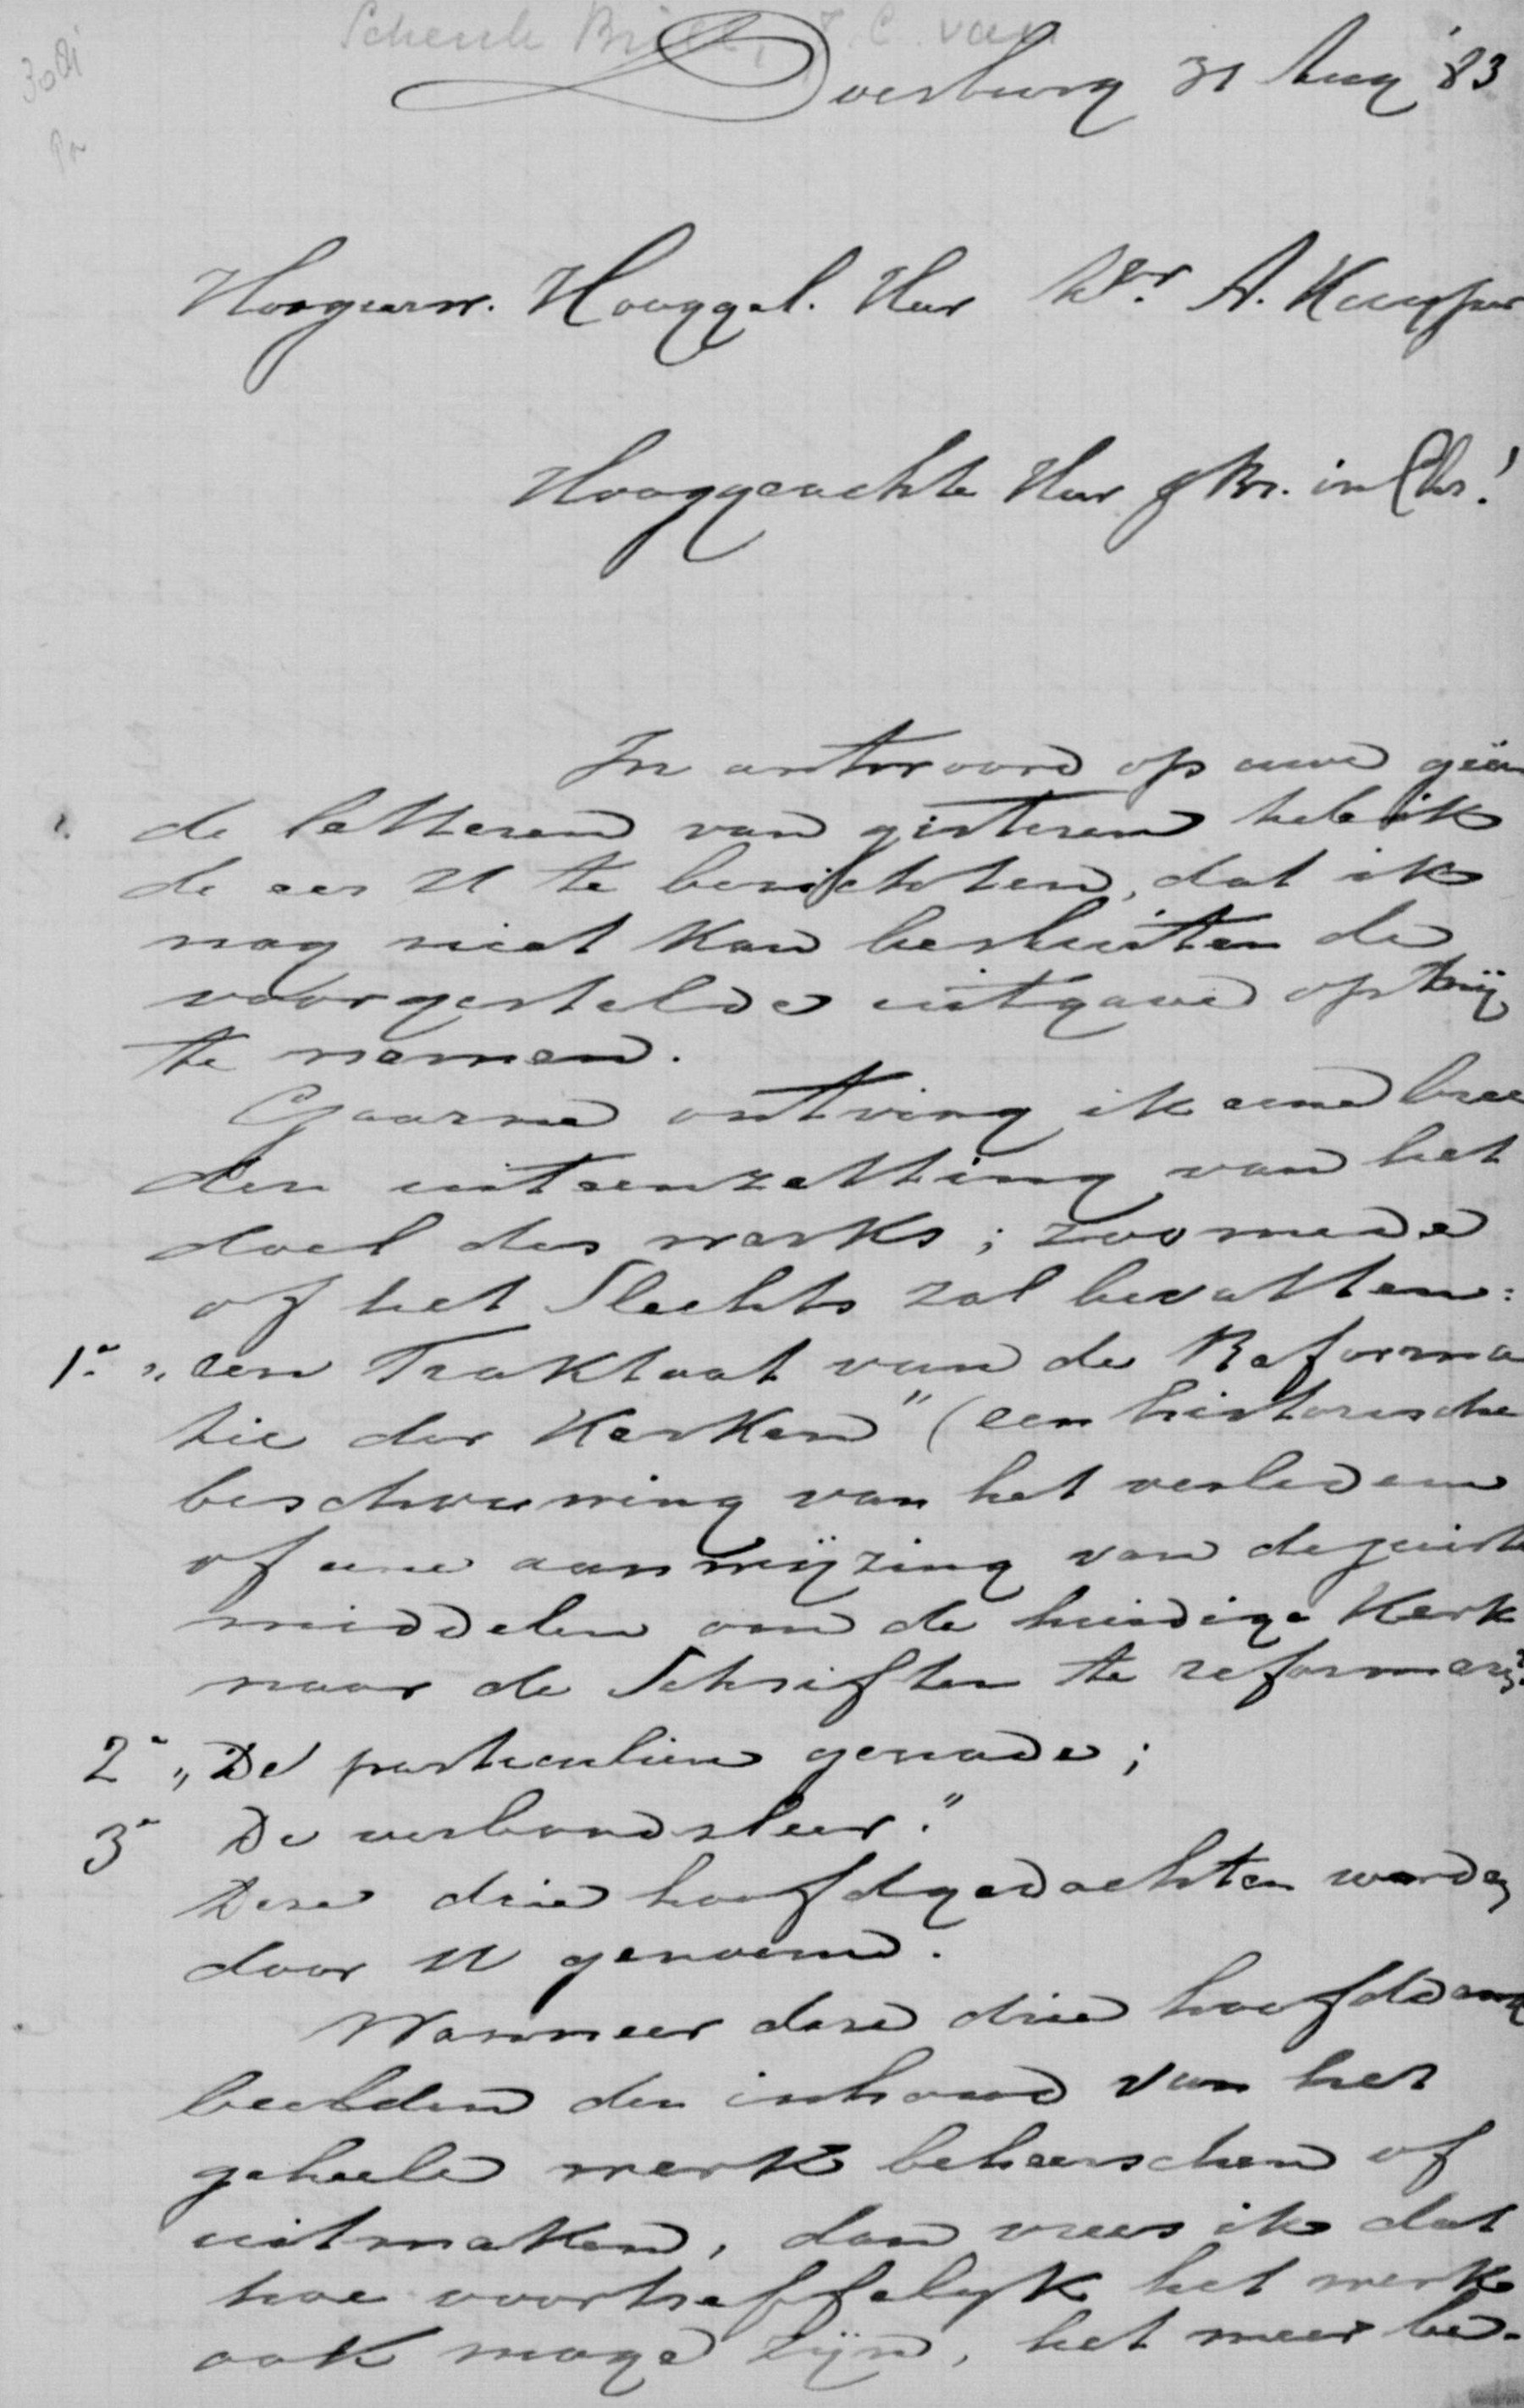 Schenk Brill, J. C. van
Doesburg 31 Aug '83
Hoogeerw. Hooggel. Heer Dr. A. Kuyper
Hooggeachte Heer & Br. in Chr.!
In antwoord op uwe geëer
de letteren van gisteren heb ik
de eer U te berichten, dat ik
nog niet kan besluiten de
voorgestelde uitgave op mij
te nemen.
Gaarne ontving ik eene bree
dere uiteenzetting van het
doel des werks; zoomede
of het slechts zal bevatten:
1° „een Traktaat van de Reforma
tie der Kerken" (een historische
beschouwing van het verleden
of eene aanwijzing van de juiste
middelen om de huidige Kerk
naar de Schriften te reformeren?
2° „De particuliere genade;
3° De verbondsleer."
Deze drie hoofdgedachten worden
door U genoemd.
Wanneer deze drie hoofddenk
beelden den inhoud van het
geheele werk beheerschen of
uitmaken, dan vrees ik dat
hoe voortreffelijk het werk
ook moge zijn, het meer be-